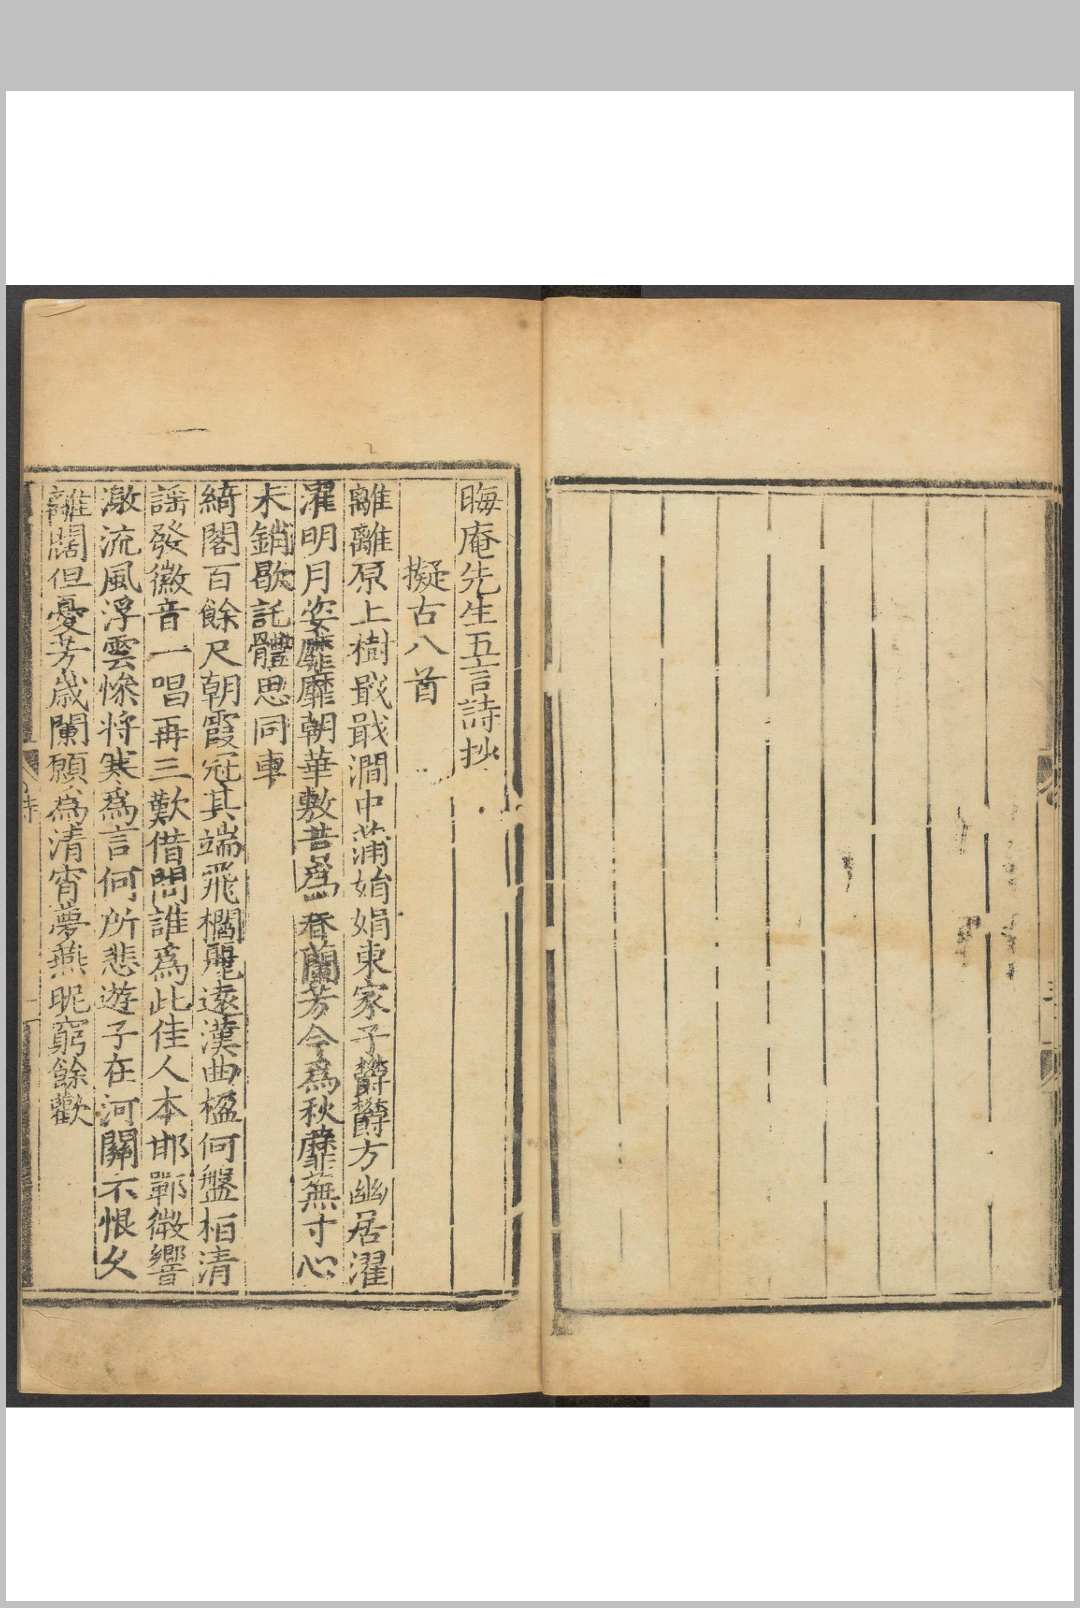 晦庵先生五言詩抄
擬古八首
離離原上樹戢戢澗中蒲娟娟東家子鬱鬱方幽居濯
濯明月姿靡靡朝華敷昔爲春蘭芳今爲秋蘼蕪寸心
未銷歇託體思同車
綺閣百餘尺朝霞冠其端飛櫩麗遠漢曲楹何盤桓清
謡發徽音一唱再三歎借問誰爲此佳人本邯鄲微響
激流風浮雲慘將寒爲言何所悲遊子在河關不恨久
離闊但憂芳歳闌願爲清宵夢燕昵窮餘歡